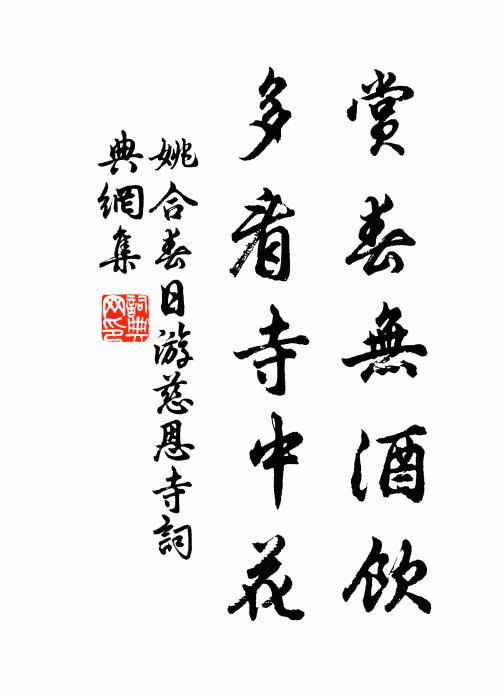 賞春無酒飲
多看寺中花
姚合春日游慈恩寺詞
典網集
詞典
网印